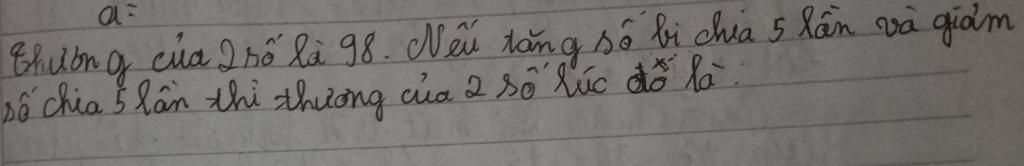 a:
Thương của 2 số là 98. Nếu tăng số bị chia 5 lần và giảm
số chia 5 lần thì thương của 2 số lúc đó là: